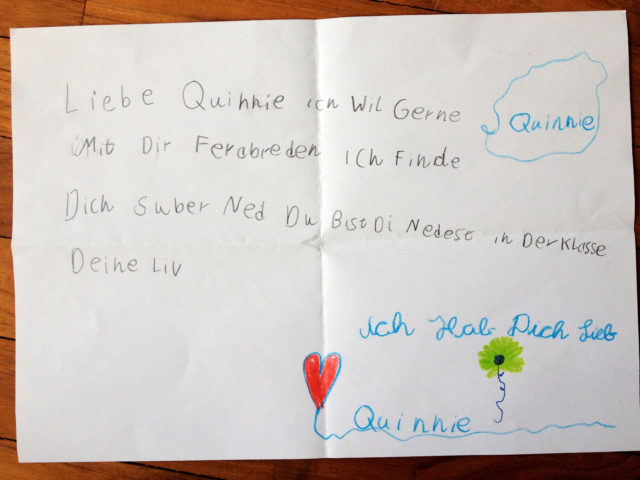 Liebe Quinnie ich Wil Gerne
Quinnie
Mit Dir Ferabreden ICh Finde
Dich Suber Ned Du Bist Di Nedest in Der Klasse
Deine Liv
ich Hab Dich Lieb
Quinnie